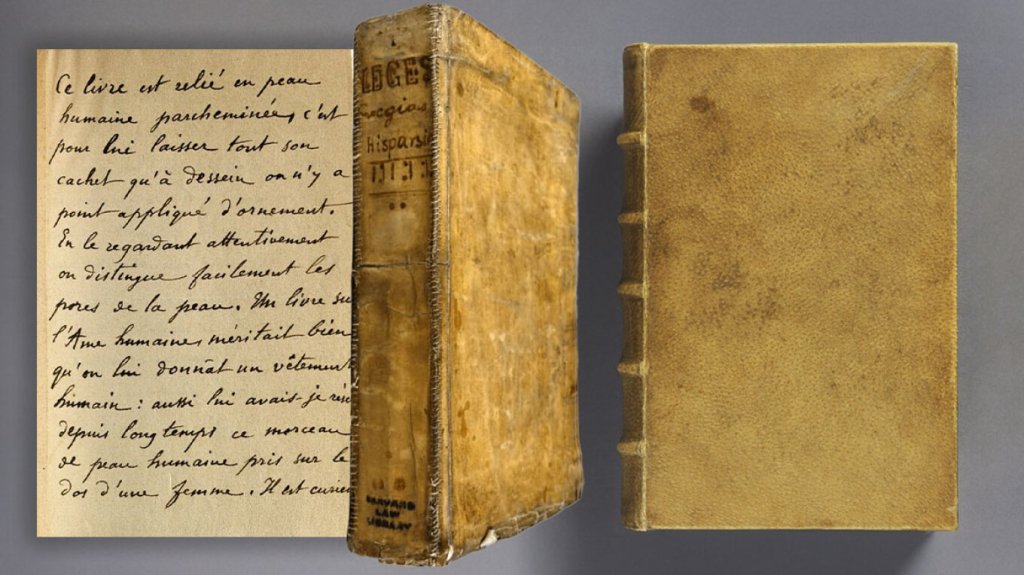 Ce livre est relié en peau
humaine parcheminée, c'est
pour lui laisser tout son
cachet qu'à dessein on n'y a
point appliqué d'ornement.
En le regardant attentivement
on distingue facilement les
pores de la peau. Un livre su
l'Ame humaine méritait bien
qu'on lui donnât un vêtement
humain : aussi lui avais-je rés
depuis longtemps ce morceau
de peau humaine pris sur le
dos d'une femme. Il est curieu
LEGES
HARVARD
LAW
LIBRARY